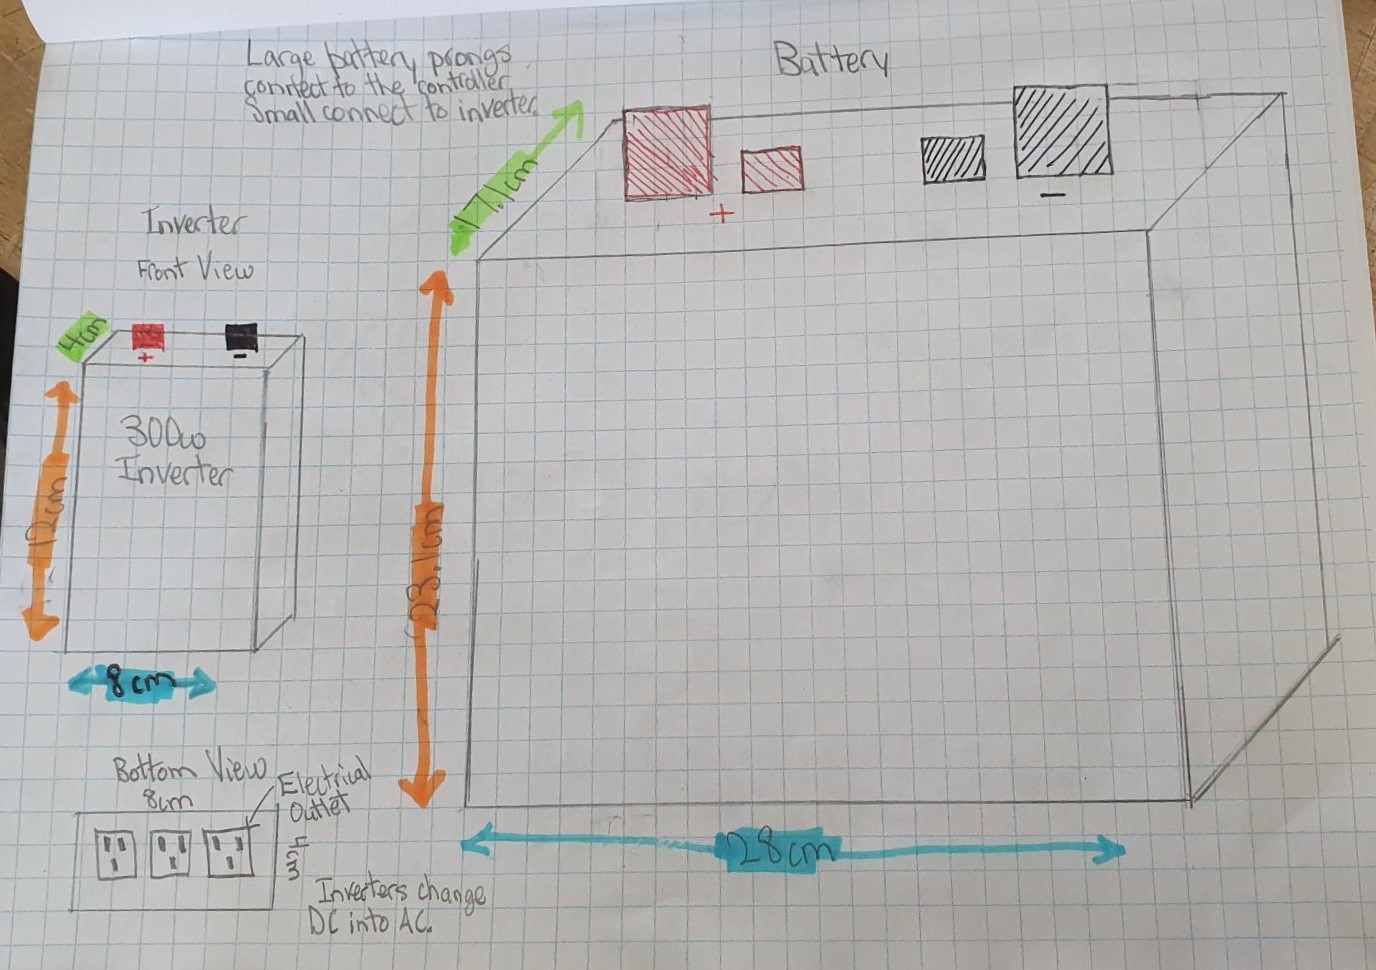 Large battery prongs
connect to the controller.
Small connect to inverter.
Battery
17.1cm
+
−
Inverter
Front View
4cm
+
-
300w
Inverter
12cm
8cm
23.1cm
28cm
Bottom View
8cm
Electrical
Outlet
4cm
Inverters change
DC into AC.